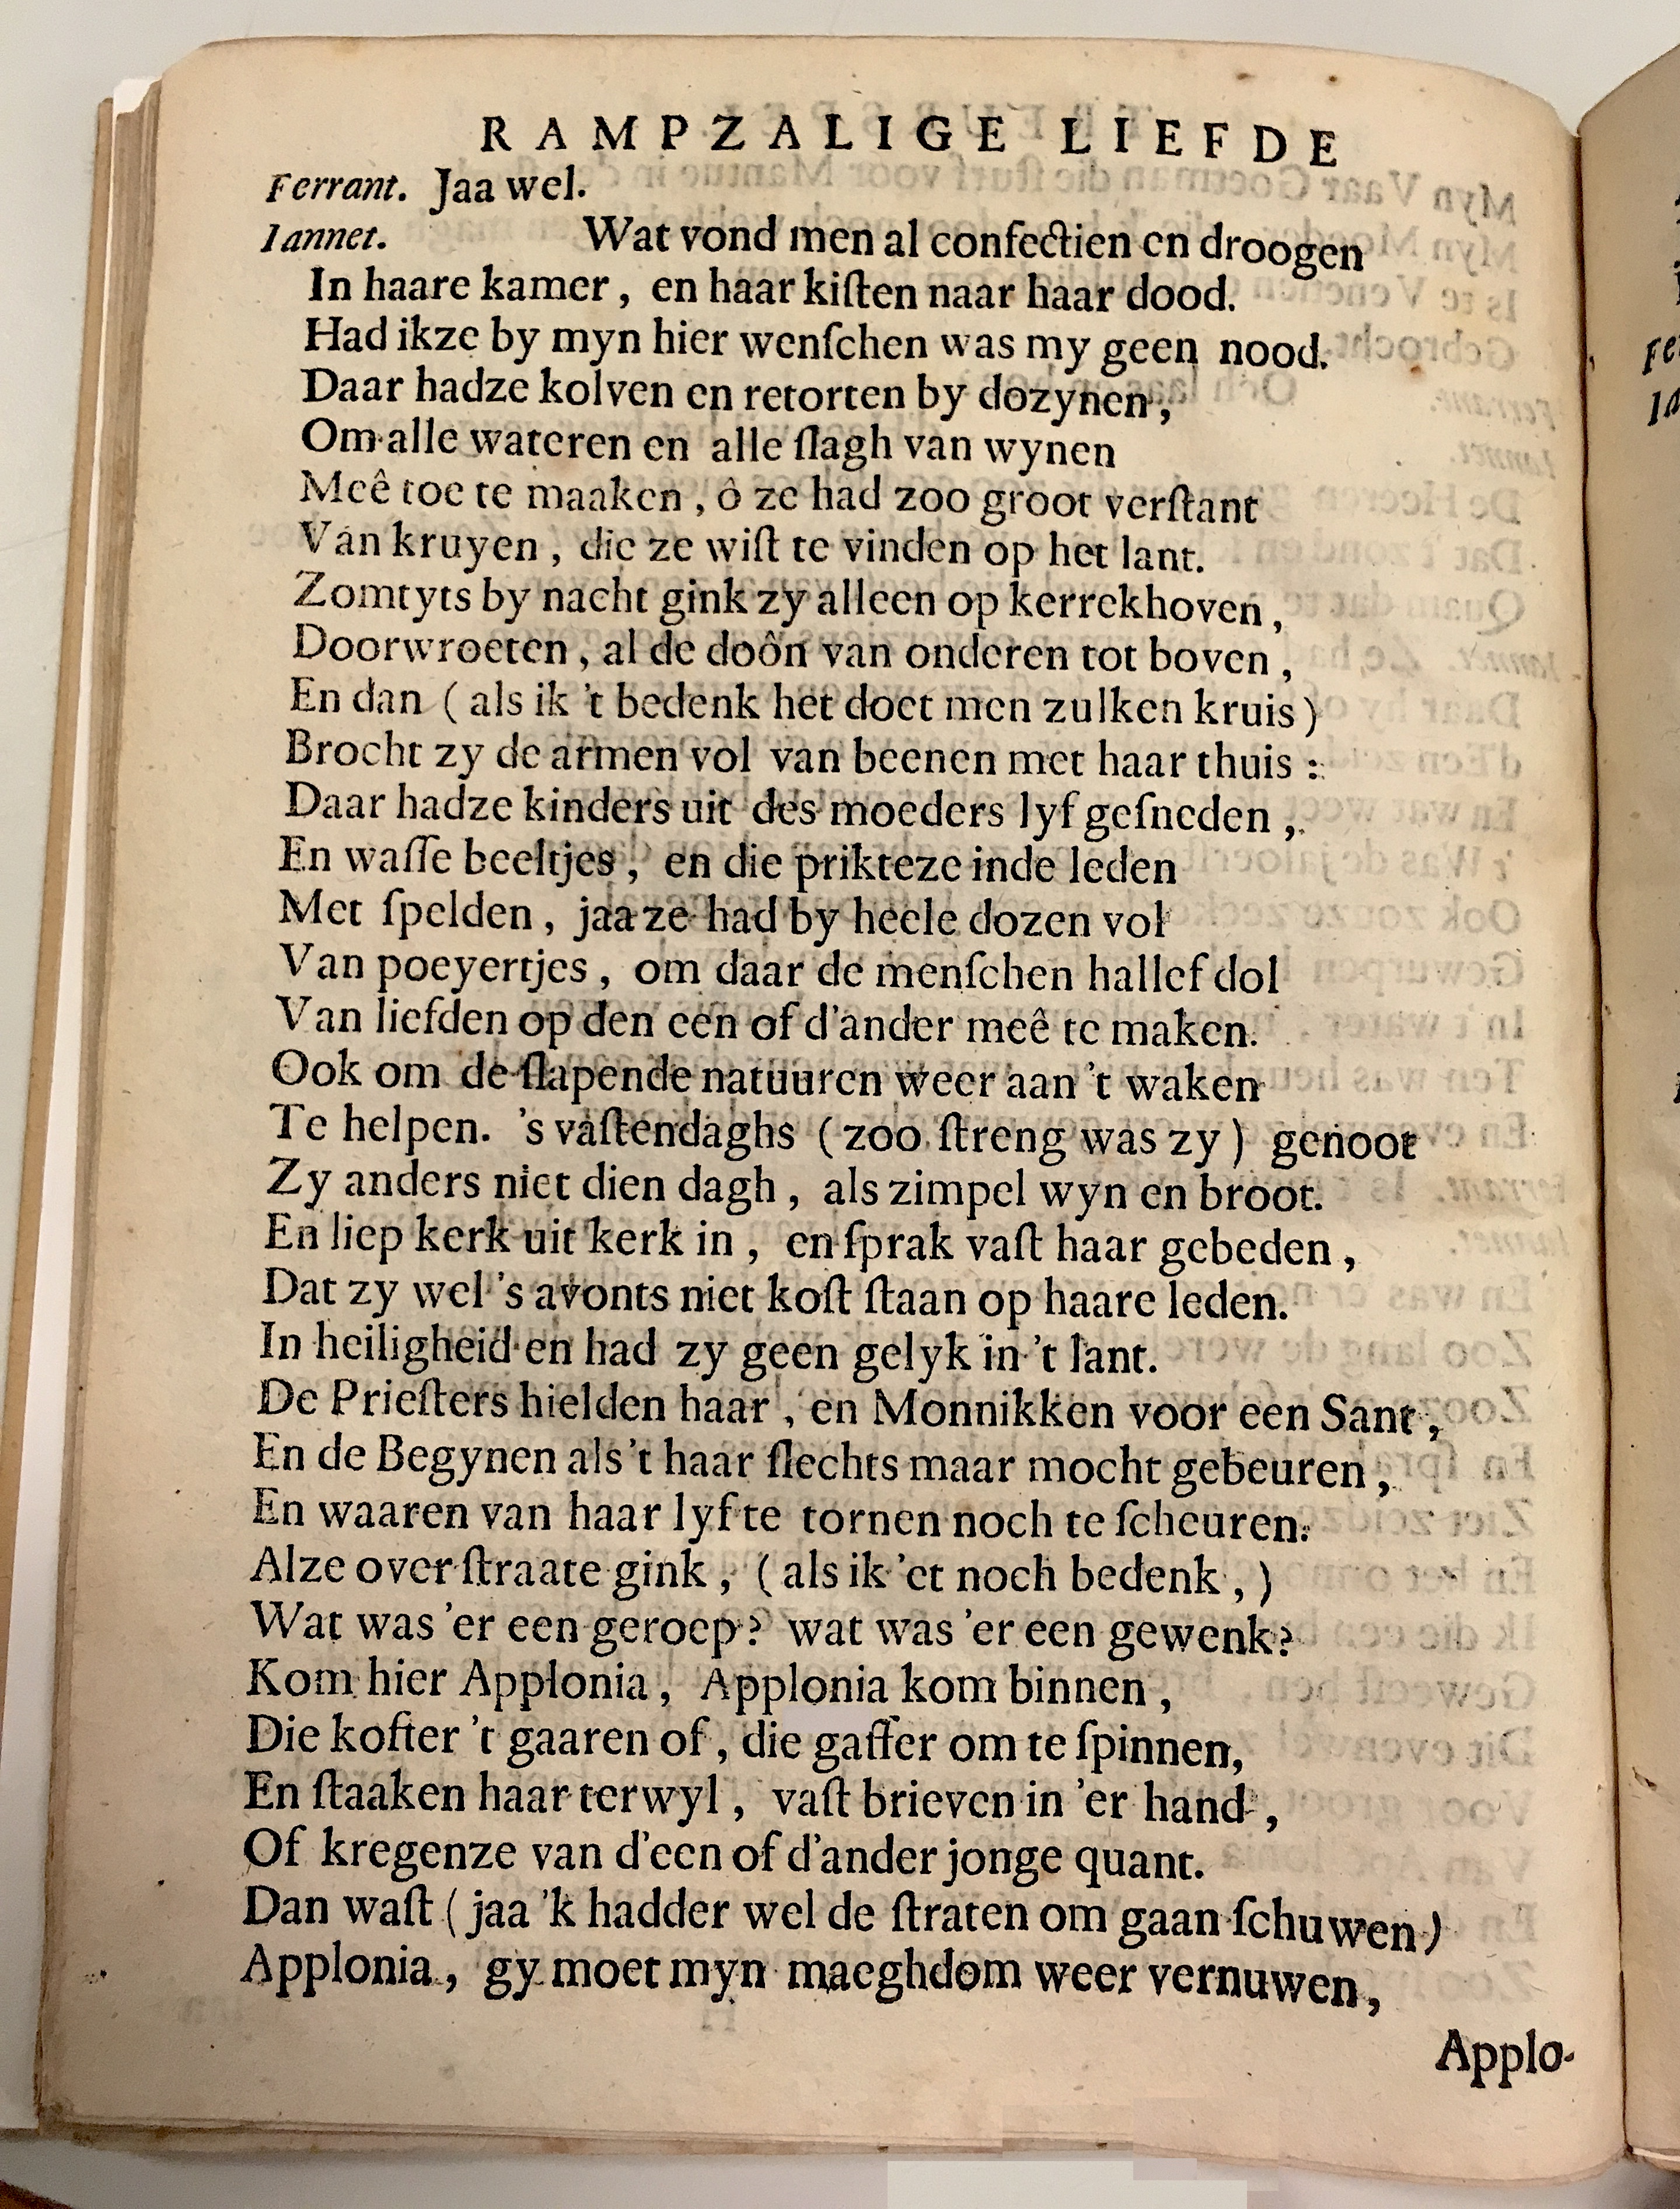 RAMPZALIGE LIEFDE
Ferrant. Jaa wel.
Iannet. Wat vond men al confectien en droogen
In haare kamer, en haar kiſten naar haar dood.
Had ikze by myn hier wenſchen was my geen nood.
Daar hadze kolven en retorten by dozynen,
Om alle wateren en alle ſlagh van wynen
Meê toe te maaken, ô ze had zoo groot verſtant
Van kruyen, die ze wiſt te vinden op het lant.
Zomtyts by nacht gink zy alleen op kerrekhoven,
Doorwroeten, al de doôn van onderen tot boven,
En dan (als ik 't bedenk het doet men zulken kruis)
Brocht zy de armen vol van beenen met haar thuis:
Daar hadze kinders uit des moeders lyf geſneden,
En waſſe beeltjes, en die prikteze inde leden
Met ſpelden, jaa ze had by heele dozen vol
Van poeyertjes, om daar de menſchen hallef dol
Van liefden op den een of d'ander meê te maken.
Ook om de ſlapende natuuren weer aan 't waken
Te helpen. 's vaſtendaghs (zoo ſtreng was zy) genoot
Zy anders niet dien dagh, als zimpel wyn en broot.
En liep kerk uit kerk in, en ſprak vaſt haar gebeden,
Dat zy wel 's avonts niet koſt ſtaan op haare leden.
In heiligheid en had zy geen gelyk in 't lant.
De Prieſters hielden haar, en Monnikken voor een Sant,
En de Begynen als 't haar ſlechts maar mocht gebeuren,
En waaren van haar lyf te tornen noch te ſcheuren.
Alze over ſtraate gink, (als ik 'et noch bedenk,)
Wat was 'er een geroep? wat was 'er een gewenk?
Kom hier Applonia, Applonia kom binnen,
Die kofter 't gaaren of, die gaffer om te ſpinnen,
En ſtaaken haar terwyl, vaſt brieven in 'er hand,
Of kregenze van d'een of d'ander jonge quant.
Dan waſt (jaa 'k hadder wel de ſtraten om gaan ſchuwen)
Applonia, gy moet myn maeghdom weer vernuwen,
Applo-